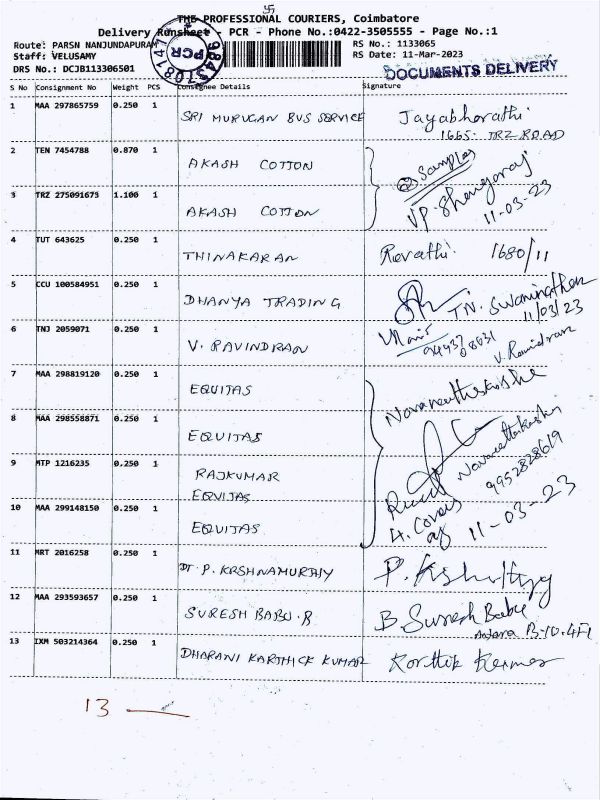 THE PROFESSIONAL COURIERS, Coimbatore
Delivery Runsheet - PCR - Phone No.:0422-3505555 - Page No.:1
Route: PARSN NANJUNDAPURAM RS No.: 1133065
Staff: VELUSAMY RS Date: 11-Mar-2023
DRS No.: DCJB113306501
PCR
DOCUMENTS DELIVERY
S No Consignment No Weight PCS Consignee Details Signature
1 MAA 297865759 0.250 1 SRI MURUGAN BUS SERVICE Jayabharathi
1665- TRZ ROAD
2 TEN 7454788 0.870 1 AKASH COTTON
Samples
3 TRZ 275091673 1.100 1 AKASH COTTON
11-03-23
4 TUT 643625 0.250 1 THINAKARAN Revathi 1680/11
5 CCU 100584951 0.250 1 DHANYA TRADING TN. Swaminathan
11/03/23
6 TNJ 2059071 0.250 1 V. RAVINDRAN
V. Ravindran
7 MAA 298819120 0.250 1 EQUITAS
8 MAA 298558871 0.250 1 EQUITAS
9 MTP 1216235 0.250 1 RAJKUMAR
EQUITAS
9952828619
10 MAA 299148150 0.250 1 EQUITAS
4. Covers
11-03-23
11 MRT 2016258 0.250 1 DT. P. KRSHNAMURTHY
12 MAA 293593657 0.250 1 SURESH BABU.R B. Suresh Babu
B-10.4Fl
13 IXM 503214364 0.250 1 DHARANI KARTHICK KUMAR Karthik Kumar
13